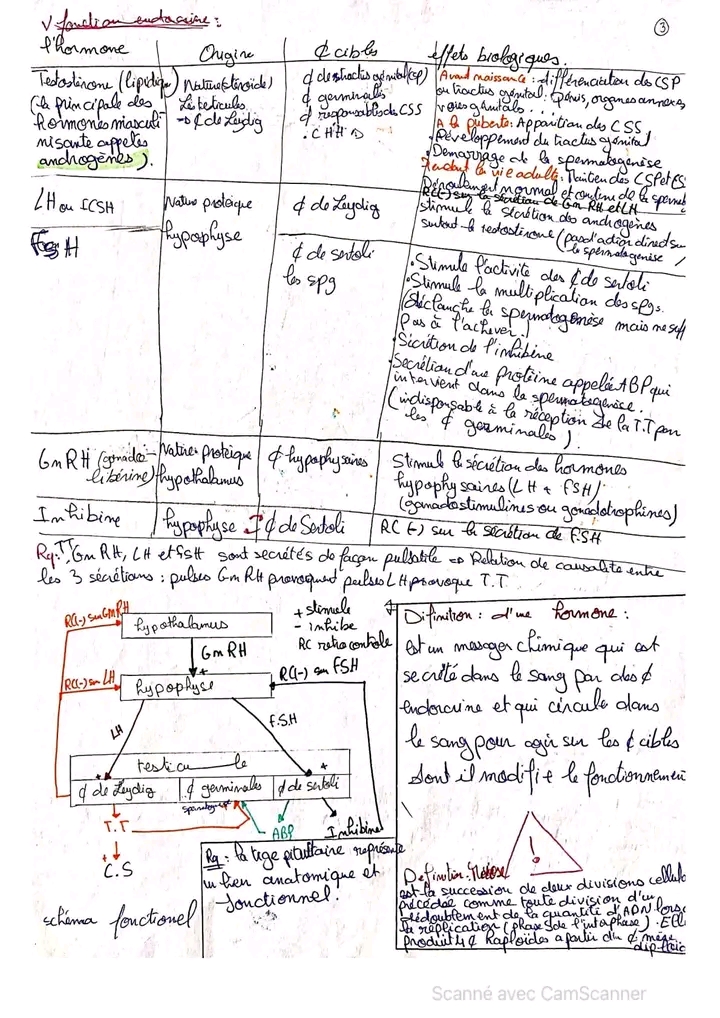 V fonction endocrine :
③
l'hormone
Origine
¢ cibles
effets biologiques.
Testostérone (lipidique)
(la principale des
hormones masculi
nisante appelés
androgènes).
Nature (stéroïde)
Les testicules
→ ¢ de Leydig
¢ des tractus génital (CSP)
¢ germinales
¢ responsables des CSS
. C H H
Avant naissance : différenciation des CSP
ou tractus génital : Pénis, organes annexes
voies génitals...
A la puberté : Apparition des CSS
. Développement du tractus génital
. Démarrage de la spermatogenèse
Pendant la vie adulte : Maintien des CSP et CSS
Déroulement normal et continu de la spermat
RC(-) sur la sécrétion de GnRH et LH
LH ou ICSH
Nature protéique
hypophyse
¢ de Leydig
stimule la sécrétion des androgènes
surtout la testostérone (pas d'action direct sur
la spermatogenèse)
FSH
¢ de sertoli
les spg
. Stimule l'activité des ¢ de sertoli
. Stimule la multiplication des spgs.
(déclanche la spermatogenèse mais ne suff
pas à l'achever.)
. Sécrétion de l'inhibine
. Secrétion d'une protéine appelée ABP qui
intervient dans la spermatogenèse.
(indispensable à la réception de la T.T par
les ¢ germinales).
GnRH (gonado-
libérine)
Nature protéique
hypothalamus
¢ hypophysaires
Stimule la sécrétion des hormones
hypophysaires (LH + FSH)
(gonadostimulines ou gonadotrophines)
Inhibine
¢ de Sertoli
hypophyse
RC (-) sur la sécrétion de FSH
Rq : TT, GnRH, LH et FSH sont secrétés de façon pulsatile => Relation de causalité entre
les 3 sécrétions : pulses GnRH provoquent pulses LH provoque T.T
RC(-) sur GnRH
hypothalamus
+ stimule
- inhibe
RC retrocontrole
GnRH
+
RC(-) sur LH
hypophyse
RC(-) sur FSH
LH
F.S.H
testicule
+
+
¢ de Leydig
¢ germinales
¢ de sertoli
T.T
ABP
Inhibine
+
C.S
schéma fonctionel
Rq : la tige pituitaire représente
un lien anatomique et
fonctionnel.
Difinition : d'une hormone :
est un messager chimique qui est
secrété dans le sang par des ¢
endocrine et qui circule dans
le sang pour agir sur les ¢ cibles
dont il modifie le fonctionnemen
!
Definition : Meiose
est la succession de deux divisions cellula
précédée comme toute division d'un
dédoublement de la quantité d'ADN lors
la réplication (phase S de l'interphase). Elle
Produit 4 ¢ haploïdes a partir d'1 ¢ mère
diploïde
Scanné avec CamScanner